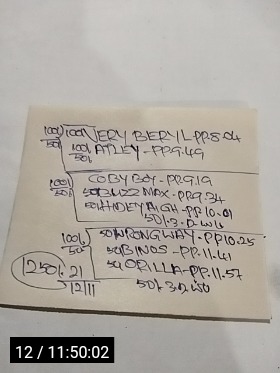 100/50 100/ VERY BERYL-PP.8.04
100/50 ATLEY-PP.9.49
100/50 COBYBOY-PP.9.19
50/ BUZZ MAX-PP.9.34
50/ HIDEY HIGH-PP.10.01
50/.3.D.W
100/50 50/ WRONG WAY.PP.10.25
50/ BINOS-PP.11.41
50/ ORILLA-PP.11.57
1250/.21
50/.3.D.W
12/11
12 / 11:50:02